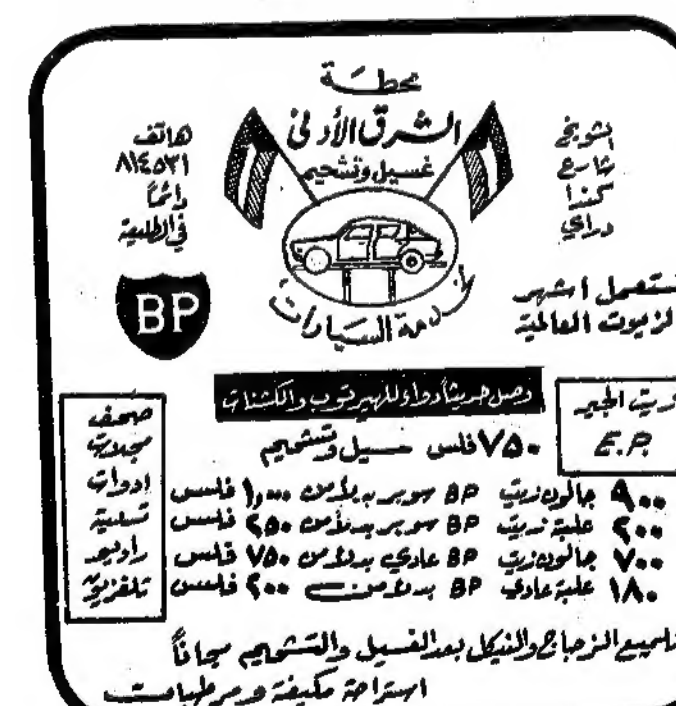 محطة
الشرق الأدنى
غسيل وتشحيم
لخدمة السيارات
هاتف
٨١٤٥٣١
دائماً
في الطليعة
الشويخ
شارع
كندا
دراي
BP
نستعمل اشهر
الزيوت العالمية
وصل حديثاً دواء للهيرتوب والكشنات
زيت الجير
E.P.
صحف
مجلات
ادوات
تسلية
راديو
تلفزيون
٧٥٠ فلس غسيل وتشحيم
٩٠٠ جالون زيت BP سوبر بدلاً من ١,٠٠٠ فلس
٢٠٠ علبة زيت BP سوبر بدلاً من ٢٥٠ فلس
٧٠٠ جالون زيت BP عادي بدلاً من ٧٥٠ فلس
١٨٠ علبة عادي BP بدلاً من ٢٠٠ فلس
تلميع الزجاج والنيكل بعد الغسيل والتشحيم مجاناً
استراحة مكيفة ومرطبات